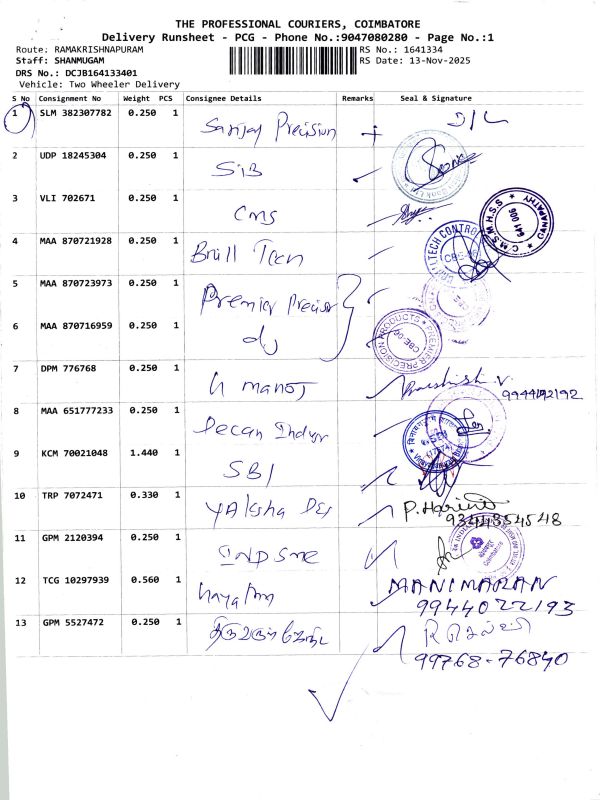 THE PROFESSIONAL COURIERS, COIMBATORE
Delivery Runsheet - PCG - Phone No.:9047080280 - Page No.:1
Route: RAMAKRISHNAPURAM RS No.: 1641334
Staff: SHANMUGAM RS Date: 13-Nov-2025
DRS No.: DCJB164133401
Vehicle: Two Wheeler Delivery
S No Consignment No Weight PCS Consignee Details Remarks Seal & Signature
1 SLM 382307782 0.250 1 Sanjay Precision D/L
2 UDP 18245304 0.250 1 SIB
3 VLI 702671 0.250 1 CMS
C.M.S.M.H.S.S GANAPATHY 641 006
4 MAA 870721928 0.250 1 Brill Tech
TECH CONTROL
5 MAA 870723973 0.250 1 Premier Precision
6 MAA 870716959 0.250 1 do
PREMIER PRECISION PRODUCTS CBE-06
7 DPM 776768 0.250 1 manoj
9944192192
8 MAA 651777233 0.250 1 Deccan
9 KCM 70021048 1.440 1 SBI
10 TRP 7072471 0.330 1 P. Harini
9344354548
11 GPM 2120394 0.250 1
12 TCG 10297939 0.560 1 MANIMARAN
9944022193
13 GPM 5527472 0.250 1
99768-76840